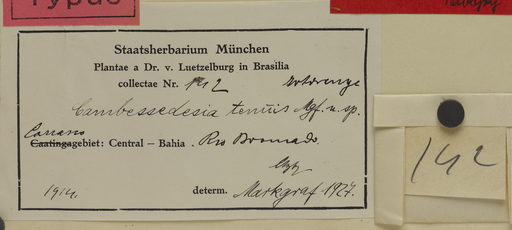 Typus
Staatsherbarium München
Plantae a Dr. v. Luetzelburg in Brasilia
collectae Nr. 142
Cambessedesia tenuis Mgf. n. sp.
Caatingagebiet: Central – Bahia . Rio Bromado.
1914.
determ. Markgraf 1927.
142